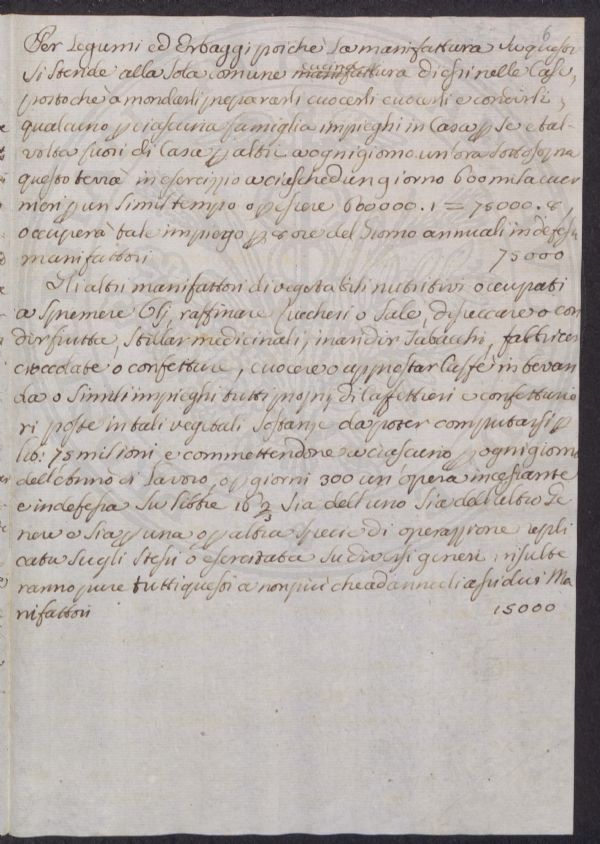 6
Per Legumi ed Erbaggi poichè la manifattura su questi
si stende alla sola comune manifattura cucina di essi nelle Case,
posto che a mondarli prepararli cuocerli e condirli,
qualcuno p ciascuna famiglia impieghi in Casa p se e tal-
volta fuori di Casa p altri a ogni giorno un'ora sottosopra
questo terrà in esercizio a ciaschedun giorno 600 mila
p un simil tempo o p essere 600000.1 = 75000.8
occuperà tale impiego p 8 ore del Giorno annuali indefessi
manifattori 75000
Gli altri manifattori di vegetabili nutritivi occupati
a spremere Olj, raffinare Zuccheri o Sale, diseccare o con
dir frutta, stillar medicinali, inaridir Tabacchi, fabbricar
cioccolate o confetture, cuocere o appostar Caffè in bevan
da o simili impieghi tutti proprj di Caffettieri e confetturie
ri poste in tali vegetali sostanze da poter computarsi p
lib: 75 milioni e commettendone a ciascuno p ogni giorno
dell'anno di lavoro, o p giorni 300 un'opera incessante
e indefessa su libbre 16 2/3 sia dell'uno sia dell'altro Ge
nere o sia p una o p altra specie di operazione repli
cata sugli stessi o esercitata su diversi generi: risulte
ranno pure tutti questi a non più che ad annuali assidui Ma
nifattori 15000